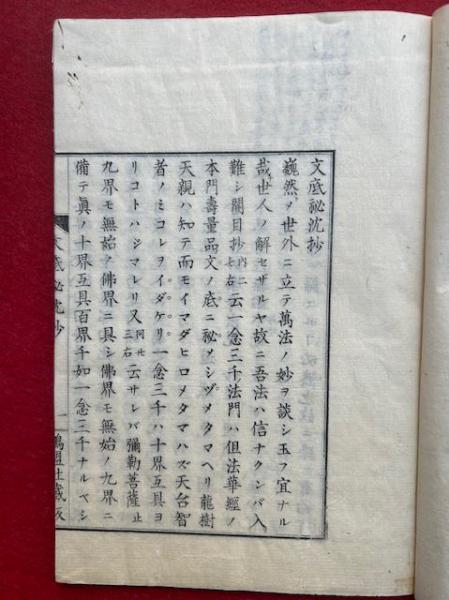 文底秘沈抄
巍然ノ世外ニ立テ萬法ノ妙ヲ談シ玉フ宜ナル
哉世人ノ解セザルヤ故ニ吾法ハ信ナクンバ入
難シ開目抄内二七右云一念三千ノ法門ハ但法華經ノ
本門壽量品文ノ底ニ秘メシヅメタマヘリ龍樹
天親ハ知テ而モイマダヒロメタマハズ天台智
者ノミコレヲイダケリ一念三千ハ十界互具ヨ
リコトハジマレリ又同廿三右云サレバ彌勒菩薩止
九界モ無始ノ佛界ニ具シ佛界モ無始ノ九界ニ
備テ眞ノ十界互具百界千如一念三千ナルヤシ
文底秘沈抄
一
鴻盟社藏版